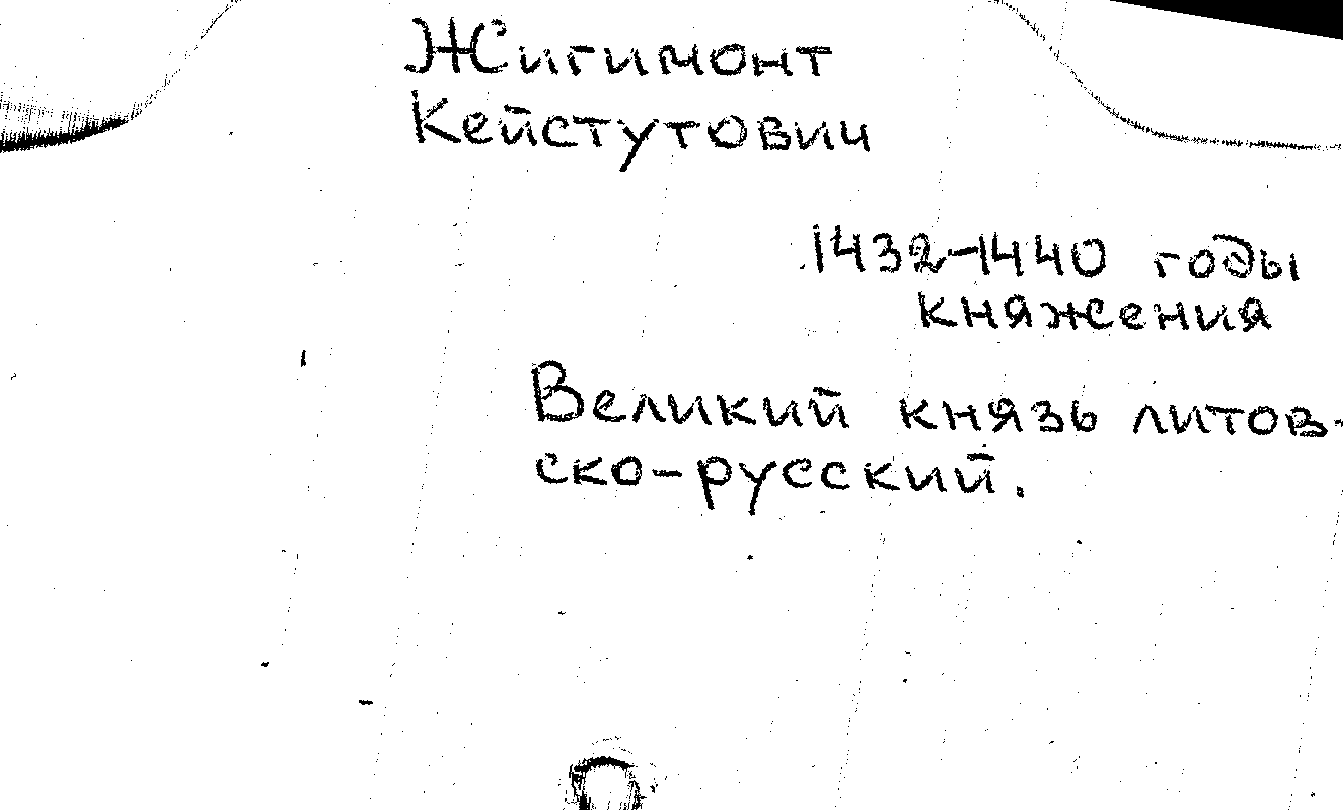 Жигимонт
Кейстутович
1432-1440 годы
княжения
Великий князь литов-
ско-русский.